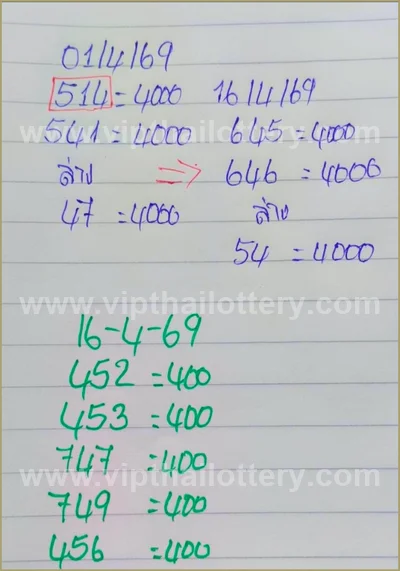 01/4/69
514 = 4000 16/4/69
541 = 4000 645 = 4000
ล่าง ⇒ 646 = 4000
47 = 4000 ล่าง
54 = 4000
www.vipthailottery.com
www.vipthailottery.com
16-4-69
452 = 400
453 = 400
747 = 400
www.vipthailottery.com
749 = 400
456 = 400